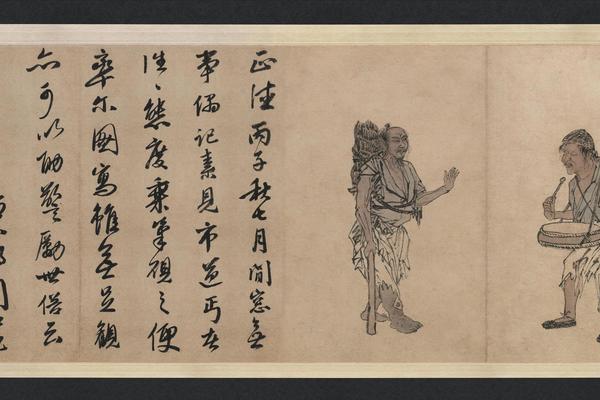 正德丙子秋七月閒窓無
事偶記素見市道丐者
往〻態度乘筆硯之便
率尔圖寫雖無足觀
亦可以助警勵世俗云